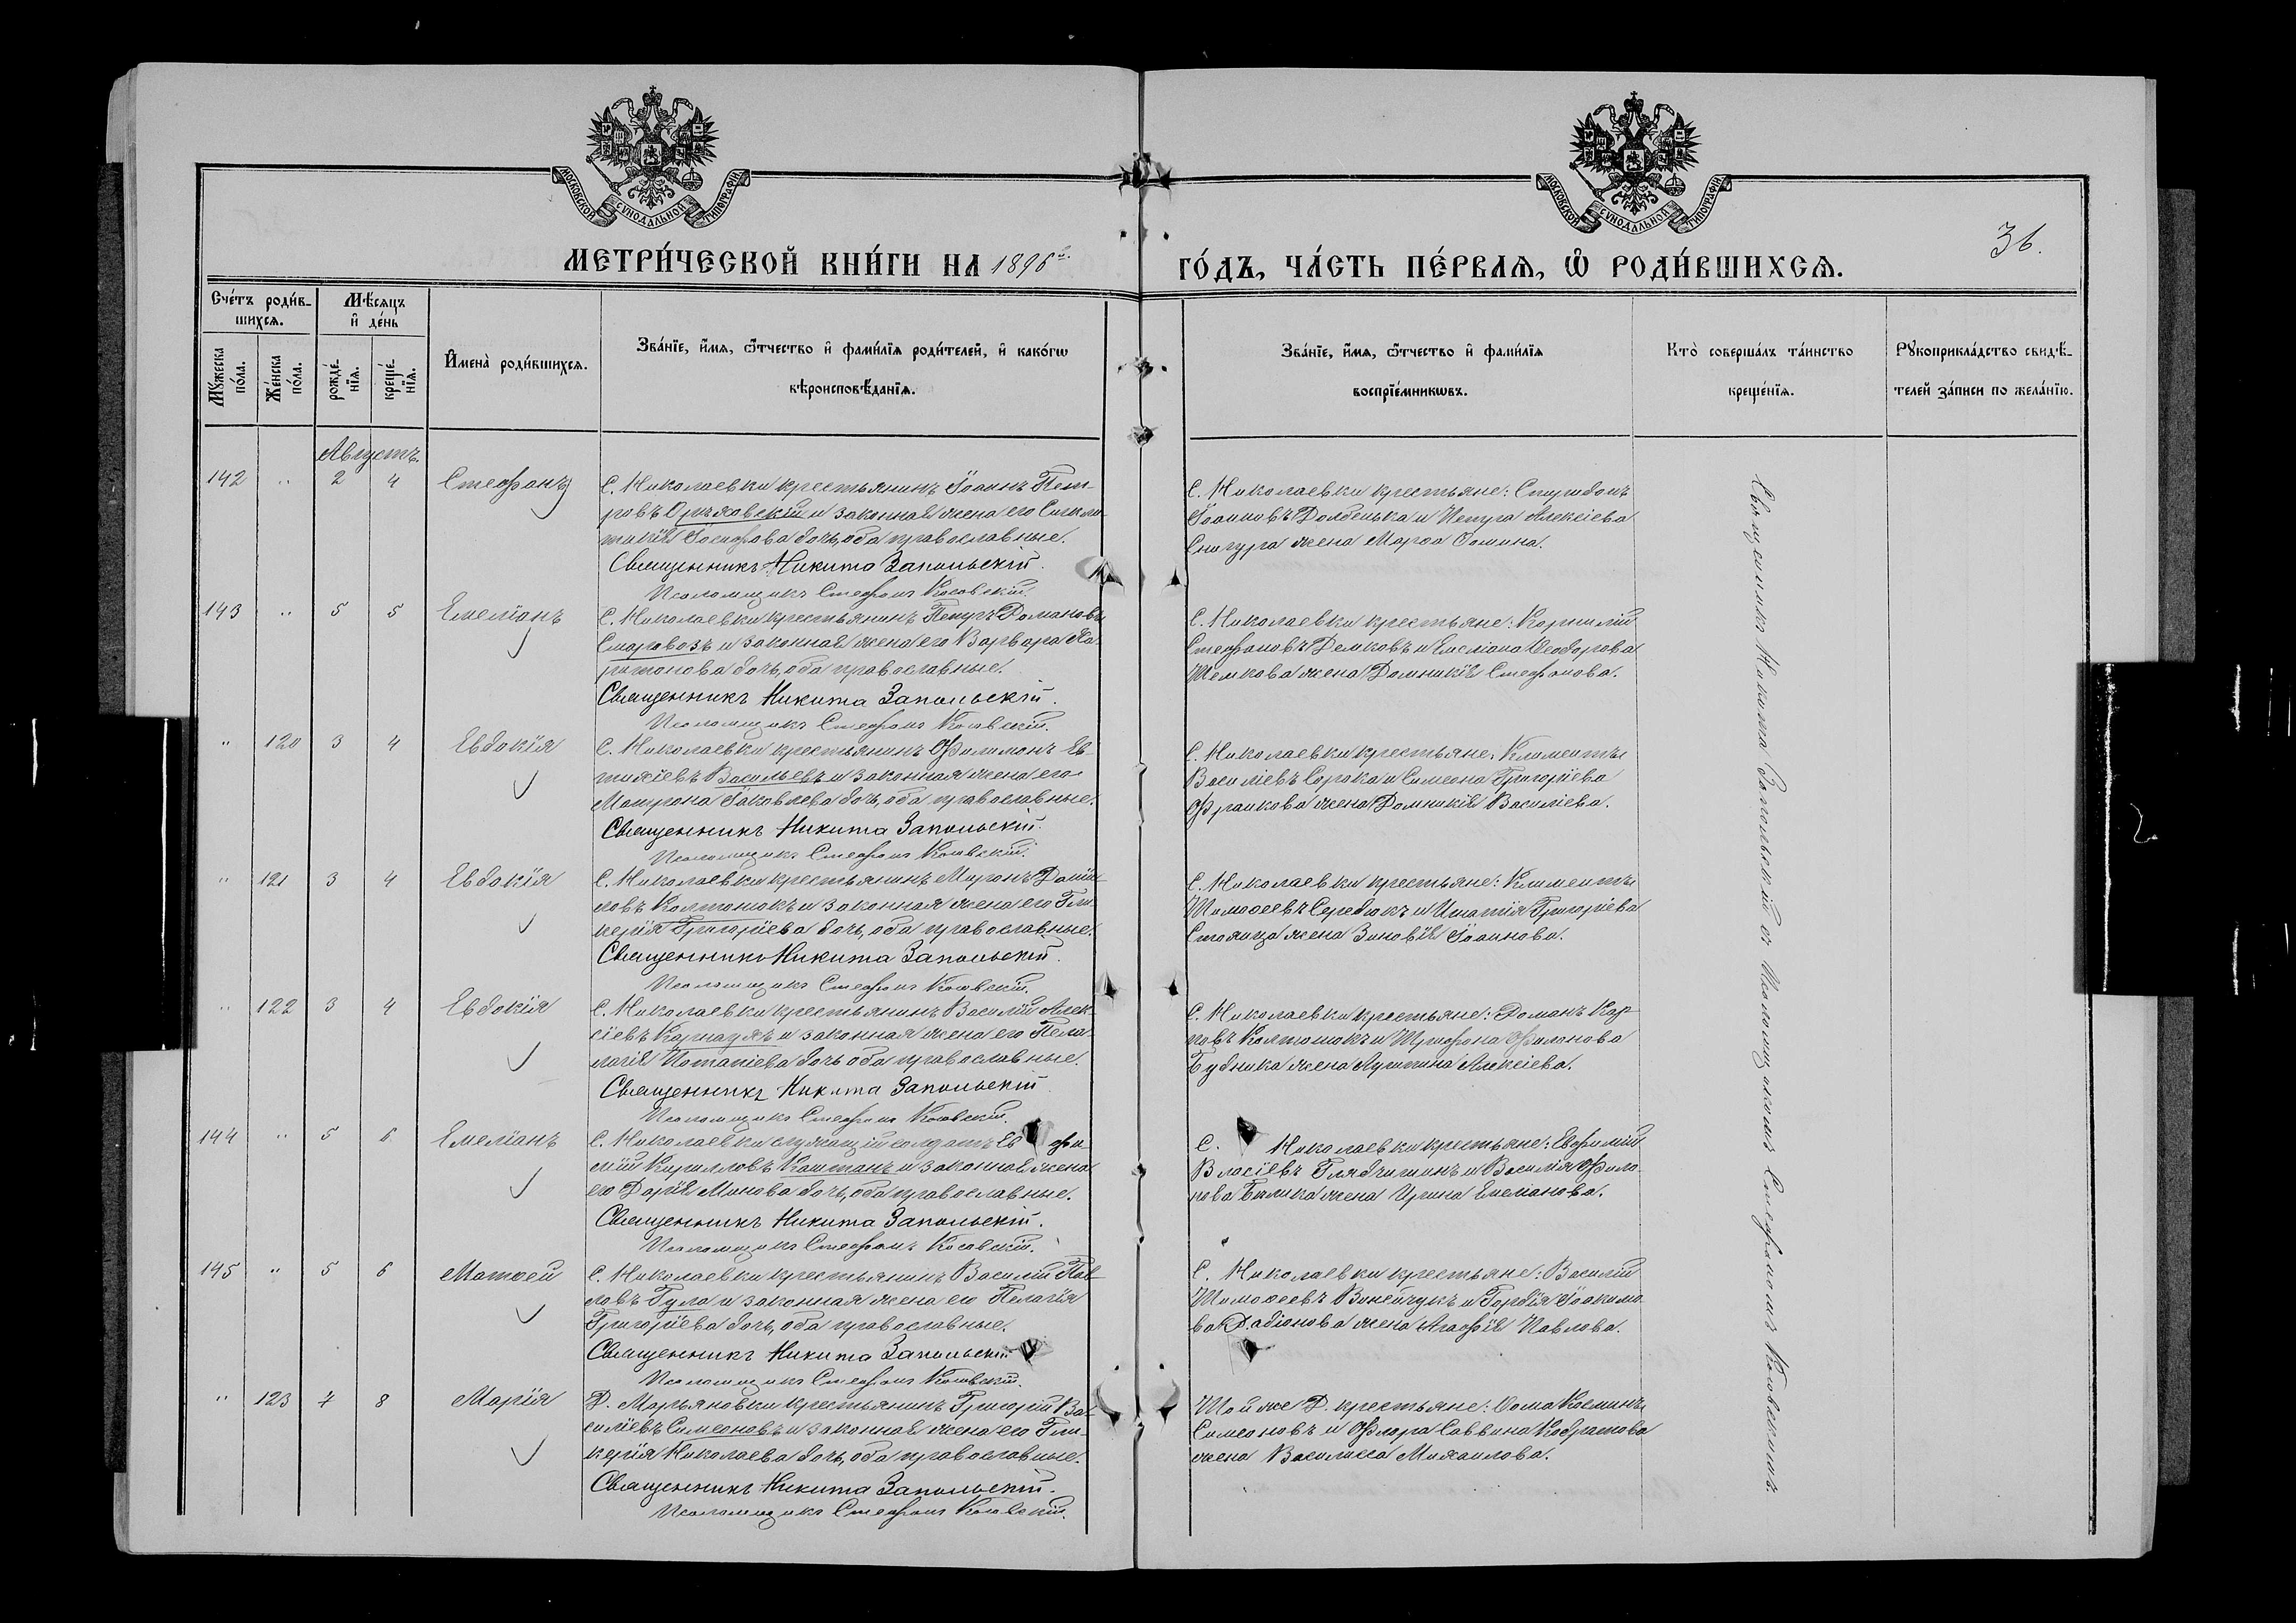 МОСКОВСКОЙ СУНОДАЛЬНОЙ ТИПОГРАФІИ
МОСКОВСКОЙ СУНОДАЛЬНОЙ ТИПОГРАФІИ
36.
МЕТРИ́ЧЕСКОЙ КНИ́ГИ НА 1896 й.
ГО́ДЪ, ЧА́СТЬ ПЕ́РВАѦ, Ѽ РОДИ́ВШИХСѦ.
Сче́тъ роди́вшихсѧ.
Мѣ́сѧцъ и҆ де́нь
Мꙋ́жеска по́ла.
Же́нска по́ла.
рожде́нїѧ.
креще́нїѧ.
И҆мена̀ роди́вшихсѧ.
Зва́нїе, и҆́мѧ, ѻ҆́тчество и҆ фами́лїѧ роди́телей, и҆ како́гѡ
вѣроисповѣ́данїѧ.
Зва́нїе, и҆́мѧ, ѻ҆́тчество и҆ фами́лїѧ
воспрїе́мникѡвъ.
Кто̀ соверша́лъ та́инство
креще́нїѧ.
Рꙋкоприкла́дство свидѣ́-
телей за́писи по жела́нїю.
Августъ.
142 " 2 4 Стефанъ
С. Николаевки крестьянинъ Іоаннъ Пет-
ровъ Оряховскій и законная жена его
Іосифова дочь, оба православные.
Священникъ Никита Запольскій.
Псаломщикъ Стефанъ Косовскій.
С. Николаевки крестьяне: Спиридонъ
Іоанновъ Долбенька и Петра Алексіева
Снигура жена Марѳа Ѳомина.
143 " 5 5 Емеліанъ
С. Николаевки крестьянинъ Петръ Романовъ
Смаровозъ и законная жена его Варвара Ха-
ритонова дочь, оба православные.
Священникъ Никита Запольскій.
Псаломщикъ Стефанъ Косовскій.
С. Николаевки крестьяне: Корнилій
Стефановъ Демковъ и Емеліана Ѳеодорова
жена Домникія Стефанова.
" 120 3 4 Евдокія
С. Николаевки крестьянинъ Филимонъ Ев-
тихіевъ Васильевъ и законная жена его
Матрона Іаковлева дочь, оба православные.
Священникъ Никита Запольскій.
Псаломщикъ Стефанъ Косовскій.
С. Николаевки крестьяне: Климентъ
Василіевъ Сорока и Симеона Григоріева
Франкова жена Домникія Василіева.
" 121 3 4 Евдокія
С. Николаевки крестьянинъ Миронъ Даніи-
ловъ Колтонюкъ и законная жена его Гли-
керія Григоріева дочь, оба православные.
Священникъ Никита Запольскій.
Псаломщикъ Стефанъ Косовскій.
С. Николаевки крестьяне: Климентъ
Тимоѳеевъ Сердюкъ и Игнатія Григоріева
жена Зиновія Іоаннова.
" 122 3 4 Евдокія
С. Николаевки крестьянинъ Василій Алек-
сіевъ Карнаухъ и законная жена его Пела-
гія Потапіева дочь, оба православные.
Священникъ Никита Запольскій.
Псаломщикъ Стефанъ Косовскій.
С. Николаевки крестьяне: Романъ Кар-
повъ Колтонюкъ и Трифона Филонова
Будника жена Агриппина Алексіева.
144 " 5 6 Емеліанъ
С. Николаевки служащій солдатъ Ев фи-
мій Кирилловъ Каштанъ и законная жена
его Дарія Минова дочь, оба православные.
Священникъ Никита Запольскій.
Псаломщикъ Стефанъ Косовскій.
С. Николаевки крестьяне: Евфимій
Власіевъ и Василія
Билыка жена Ирина Емеліанова.
145 " 5 6 Матѳей
С. Николаевки крестьянинъ Василій Пав-
ловъ Гула и законная жена его Пелагія
Григоріева дочь, оба православные.
Священникъ Никита Запольскій
Псаломщикъ Стефанъ Косовскій.
С. Николаевки крестьяне: Василій
Тимоѳеевъ Винейчукъ и Гордія Іоакимо-
ва Радіонова жена Агафія Павлова.
" 123 7 8 Марія
Д. Марьяновки крестьянинъ Григорій Ва-
силіевъ Симеоновъ и законная жена его Гли-
керія Николаева дочь, оба православные.
Священникъ Никита Запольскій.
Псаломщикъ Стефанъ Косовскій.
Той же Д. крестьяне: Ѳома Косминъ
Симеоновъ и Флора Саввина Кодратова
жена Василиса Михаилова.
Священникъ Никита Запольскій съ Псаломщикомъ Стефаномъ Косовскимъ.